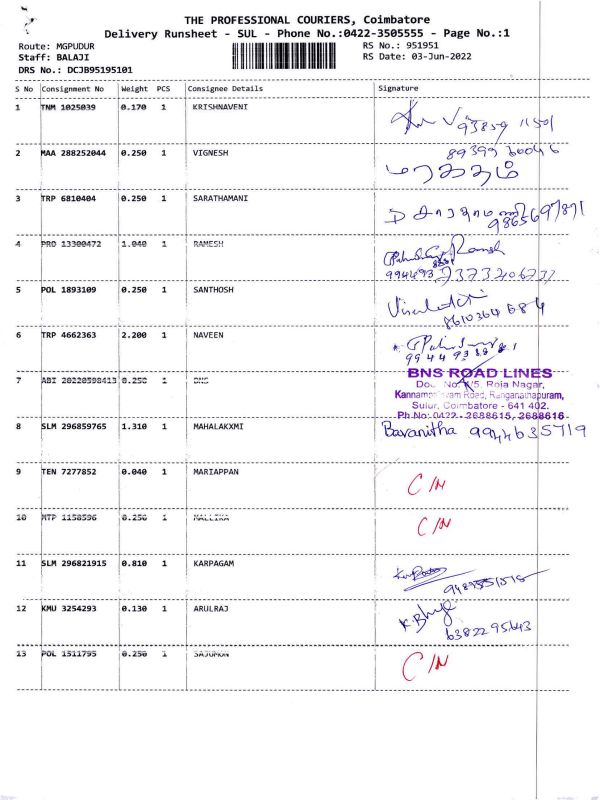 THE PROFESSIONAL COURIERS, Coimbatore
Delivery Runsheet - SUL - Phone No.:0422-3505555 - Page No.:1
Route: MGPUDUR RS No.: 951951
Staff: BALAJI RS Date: 03-Jun-2022
DRS No.: DCJB95195101
S No Consignment No Weight PCS Consignee Details Signature
1 TNM 1025039 0.170 1 KRISHNAVENI
93859 11501
2 MAA 288252044 0.250 1 VIGNESH
89399 30046
3 TRP 6810404 0.250 1 SARATHAMANI
9865697871
4 PRO 13300472 1.040 1 RAMESH
Ramesh
5 POL 1893109 0.250 1 SANTHOSH
8610364684
6 TRP 4662363 2.200 1 NAVEEN
7 ABI 20220598413 0.250 1 BNS
BNS ROAD LINES
Roja Nagar,
Road, Ranganathapuram,
Sulur, Coimbatore - 641 402.
Ph No: 0422 - 2688615, 2688616
8 SLM 296859765 1.310 1 MAHALAKXMI
Bavanitha 9944635719
9 TEN 7277852 0.040 1 MARIAPPAN
C/N
10 MTP 1158596 0.250 1 MALLIKA
C/N
11 SLM 296821915 0.810 1 KARPAGAM
12 KMU 3254293 0.130 1 ARULRAJ
6382295643
13 POL 1511795 0.250 1 SAJUMON
C/N